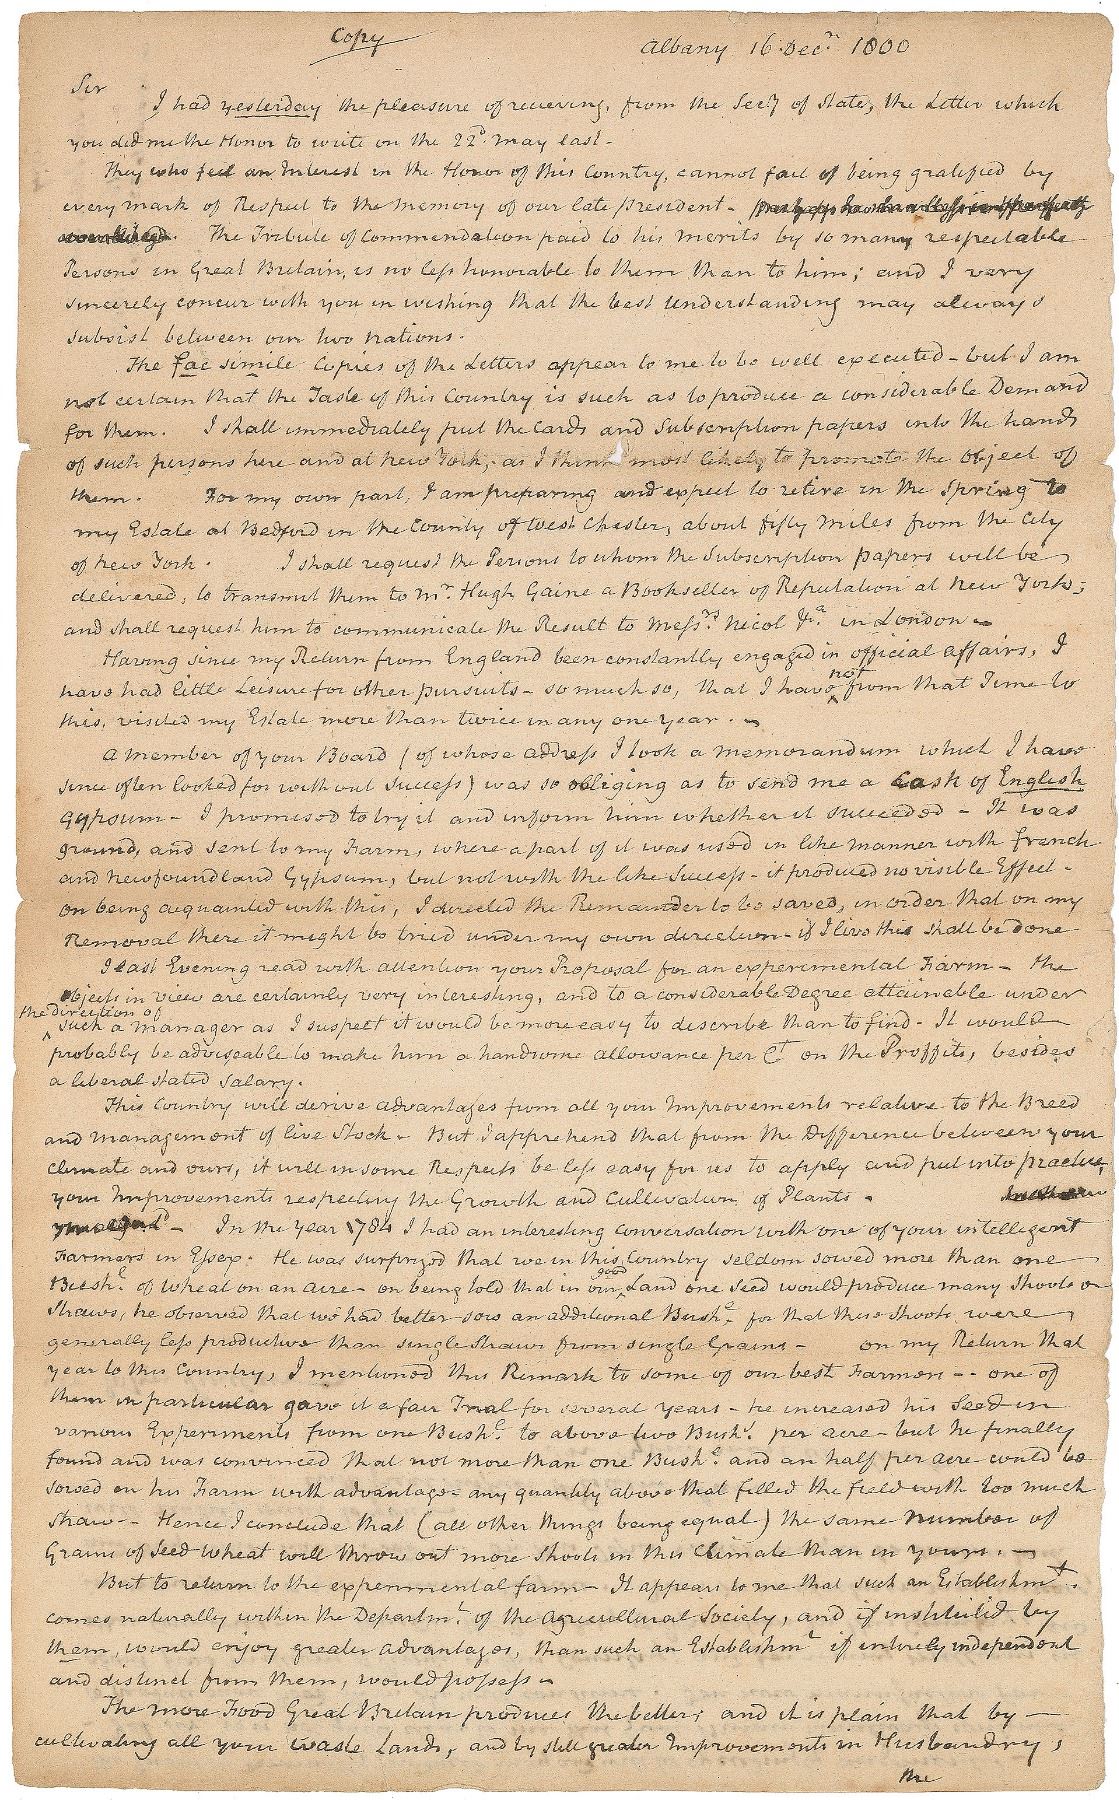 Copy
Albany 16 Decr. 1800
Sir
I had yesterday the pleasure of recieving, from the Secy of State, the Letter which
you did me the Honor to write on the 22d. May last-
They who feel an Interest in the Honor of this Country, cannot fail of being gratified by
every mark of Respect to the memory of our late president-
The Tribute of Commendation paid to his merits by so many respectable
Persons in Great Britain, is no less honorable to them than to him; and I very
sincerely concur with you in wishing that the best understanding may always
subsist between our two nations.
The fac simile Copies of the Letters appear to me to be well executed - but I am
not certain that the Taste of this Country is such as to produce a considerable Demand
for them. I shall immediately put the Cards and Subscription papers into the hands
of such persons here and at New York, as I think most likely to promote the object of
them. For my own part, I am preparing and expect to retire in the Spring to
my Estate at Bedford in the County of West Chester, about fifty miles from the City
of New York. I shall request the Persons to whom the Subscription papers will be
delivered, to transmit them to Mr. Hugh Gaine a Bookseller of Reputation at New York;
and shall request him to communicate the Result to Messrs. Nicol & Ca. in London-
Having since my Return from England been constantly engaged in official affairs, I
have had little Leisure for other pursuits - so much so, that I have not from that Time to
this, visited my Estate more than twice in any one year.-
A member of your Board (of whose address I took a memorandum which I have
since often looked for without success) was so obliging as to send me a Cask of English
Gypsum- I promised to try it and inform him whether it succeeded - It was
ground, and sent to my Farm, where a part of it was used in like manner with french
and Newfoundland Gypsum, but not with the like Success - it produced no visible Effect-
on being acquainted with this, I directed the Remainder to be saved, in order that on my
Removal there it might be tried under my own direction - if I live this shall be done
I last Evening read with attention your Proposal for an experimental Farm - the
objects in view are certainly very interesting, and to a considerable Degree attainable under
the direction of
such a manager as I suspect it would be more easy to describe than to find - It would
probably be adviseable to make him a handsome allowance per Ct on the Proffits, besides
a liberal stated salary.
This Country will derive advantages from all your Improvements relative to the Breed
and management of live Stock- But I apprehend that from the Difference between your
climate and ours, it will in some Respects be less easy for us to apply and put into practice,
your Improvements respecting the Growth and Cultivation of Plants.
- In the year 1784 I had an interesting conversation with one of your intelligent
Farmers in Essex. He was surprized that we in this Country seldom sowed more than one
Bushl. of wheat on an acre - on being told that in our good Land one Seed would produce many Shoots or
Straws, he observed that we had better sow an additional Bushl. for that these Shoots were
generally less productive than single Straws from single Grains - on my Return that
year to this Country, I mentioned this Remark to some of our best Farmers -- one of
them in particular gave it a fair Trial for several years - he increased his Seed in
various Experiments from one Bushl. to above two Bushls. per acre - but he finally
found and was convinced that not more than one Bushl. and an half per acre could be
sowed on his Farm with advantage - any quantity above that filled the field with too much
Straw -- Hence I conclude that (all other things being equal) the same number of
Grains of Seed wheat will throw out more Shoots in this Climate than in yours.-
But to return to the experimental farm - It appears to me that such an Establishmt.
comes naturally within the Departmt. of the Agricultural Society, and if instituted by
them, would enjoy greater advantages, than such an Establishmt if entirely independent
and distinct from them, would possess-
The more Food Great Britain produces the better; and it is plain that by -
cultivating all your waste Lands, and by still greater Improvements in Husbandry,
the